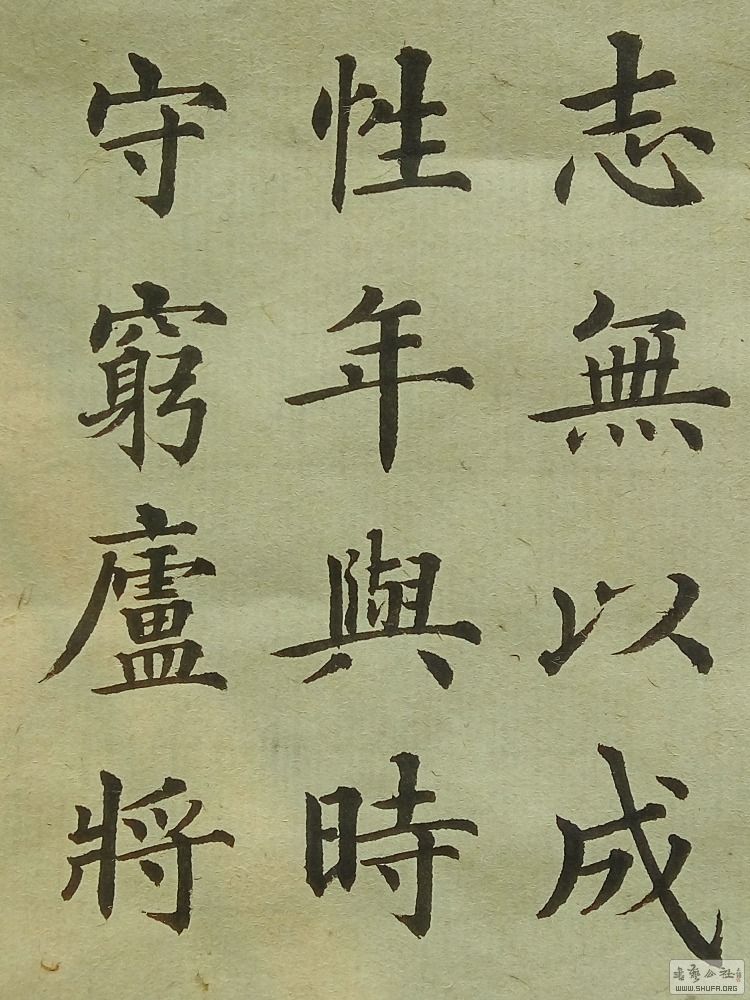 志無以成
性年與時
守窮廬將
WWW.SHUFA.ORG